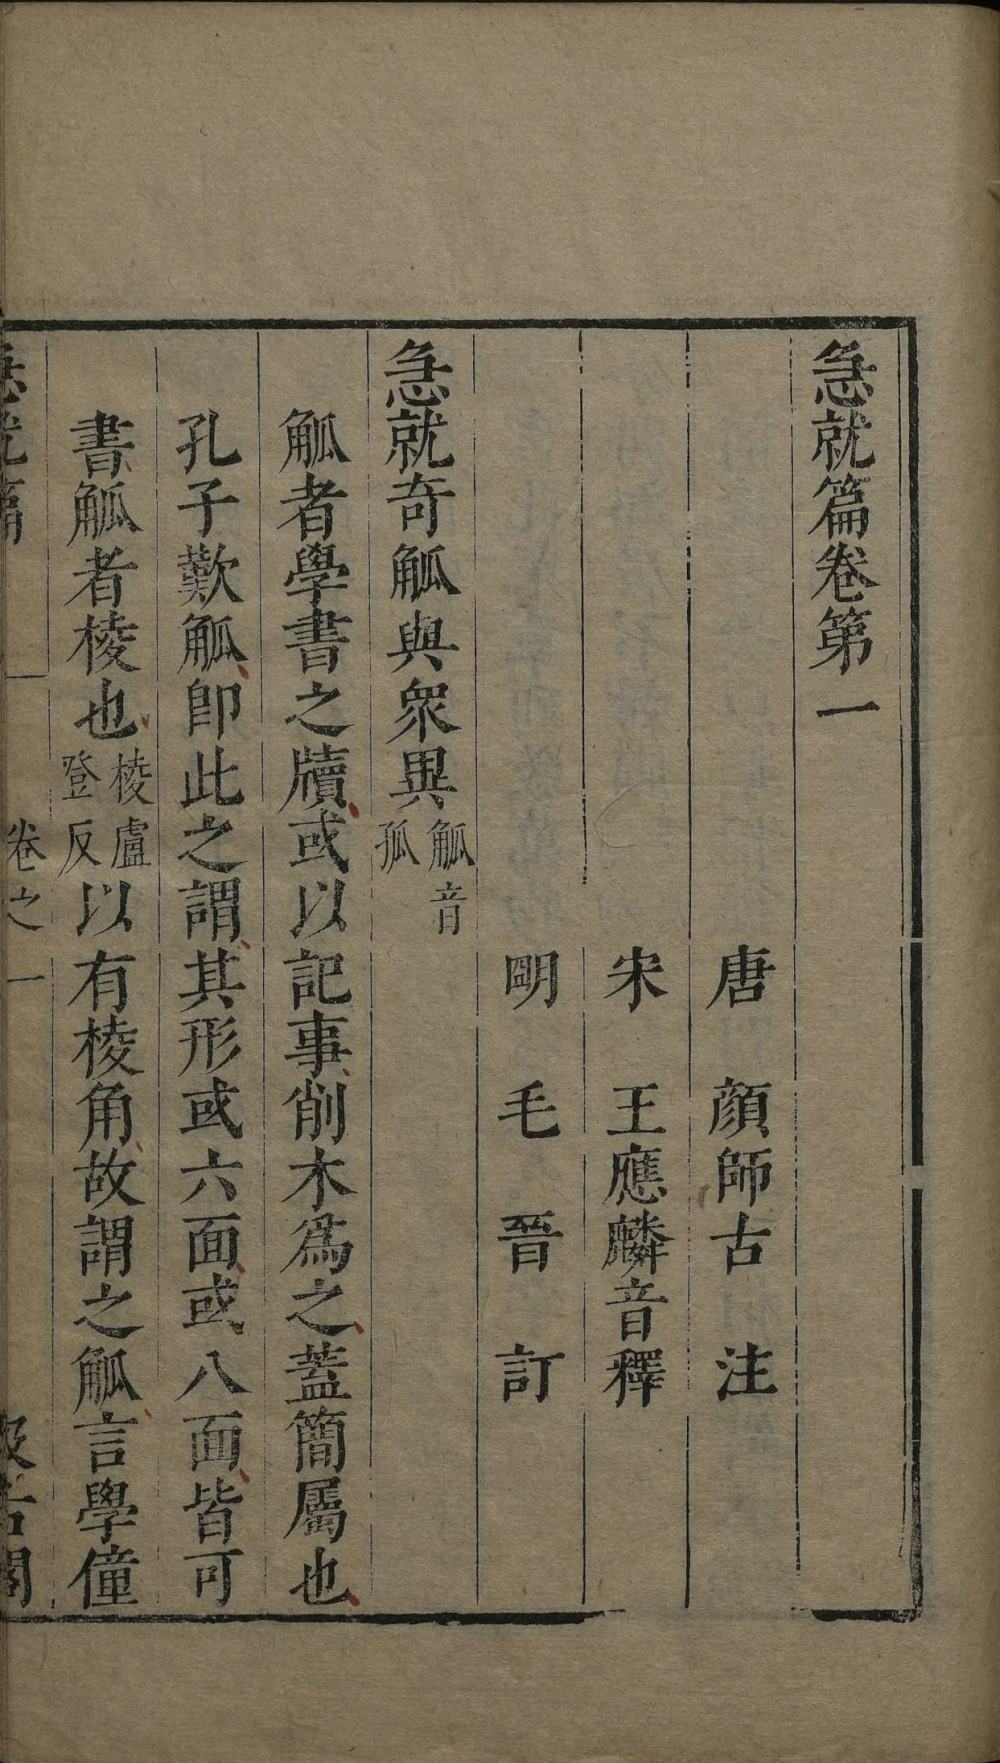 急就篇卷第一
唐　顔師古　注
宋　王應麟音釋
明　毛　晉　訂
急就奇觚與衆異觚音孤
觚者學書之牘或以記事削木爲之蓋簡屬也
孔子歎觚卽此之謂其形或六面或八面皆可
書觚者棱也棱盧登反以有棱角故謂之觚言學僮
急就篇　卷之一　汲古閣